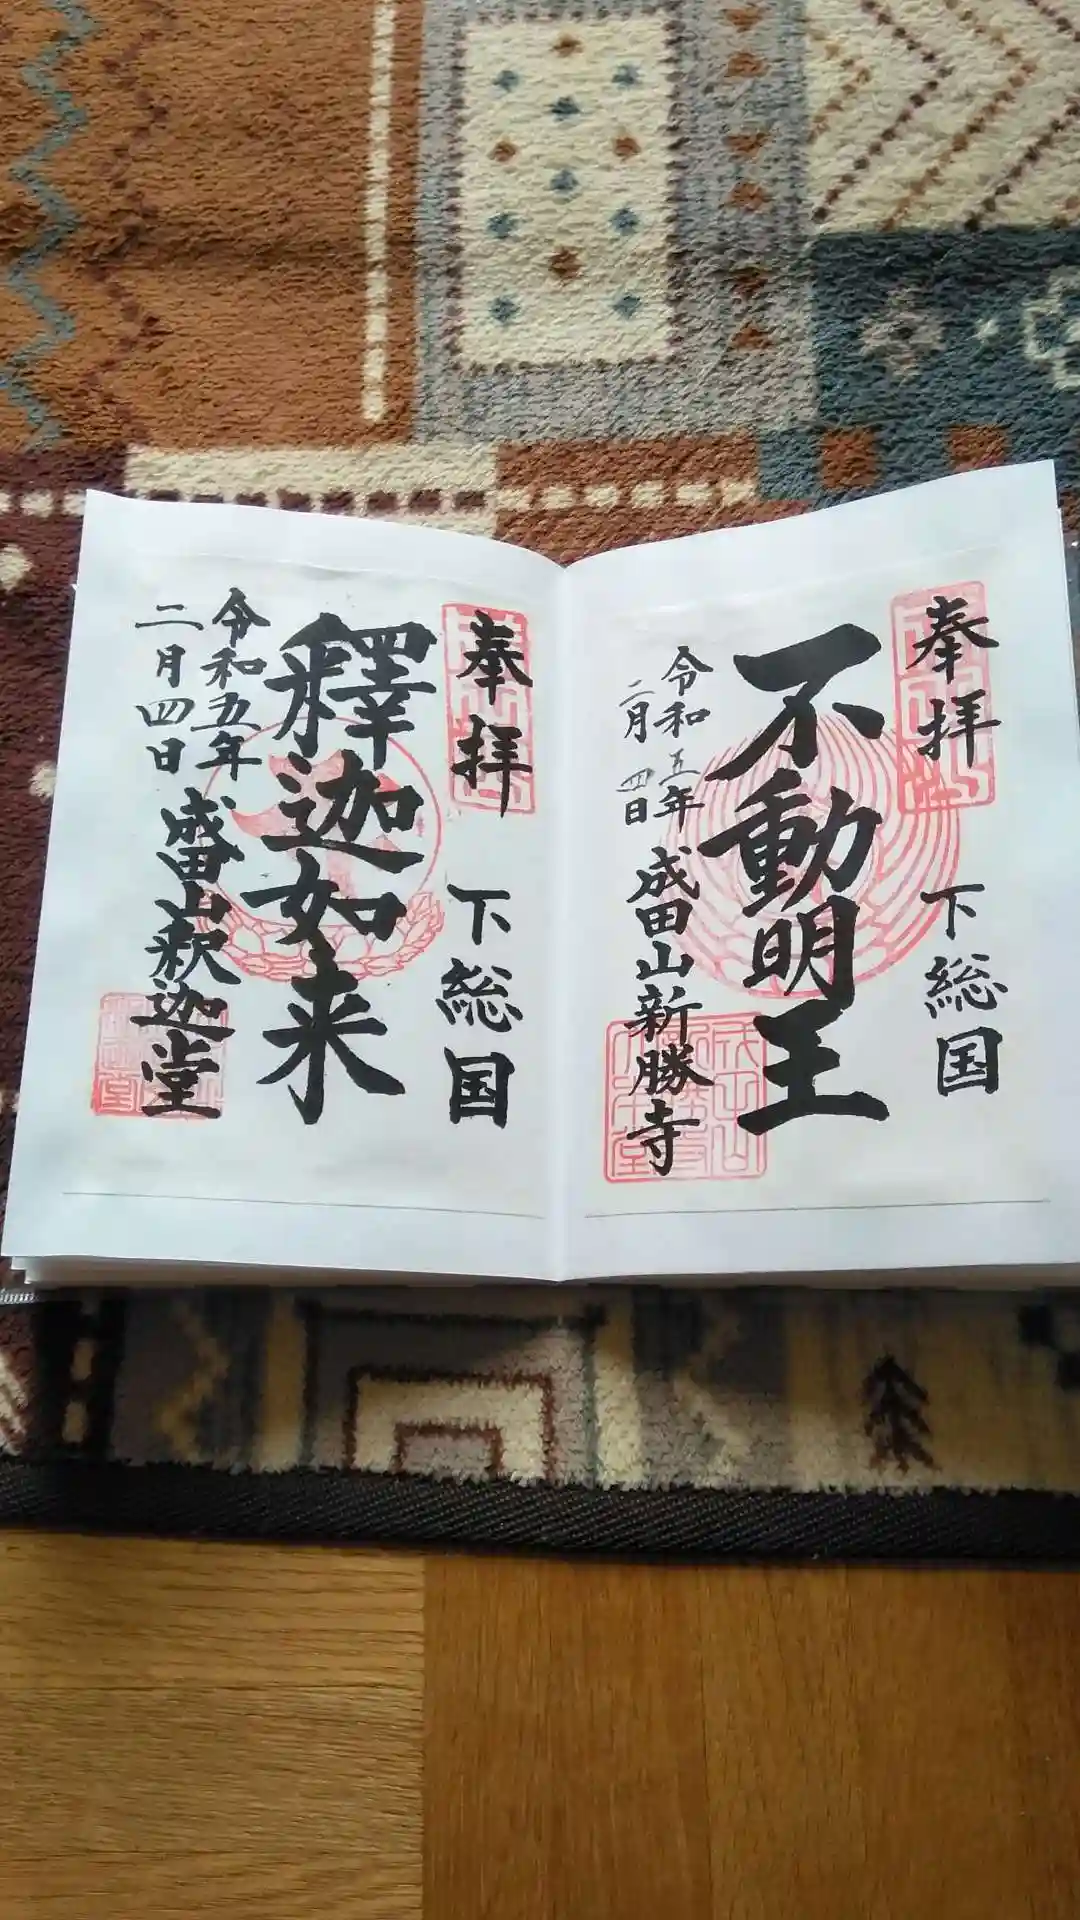 奉拝
下総国
不動明王
令和五年
二月四日
成田山新勝寺
奉拝
下総国
釋迦如来
令和五年
二月四日
成田山釈迦堂